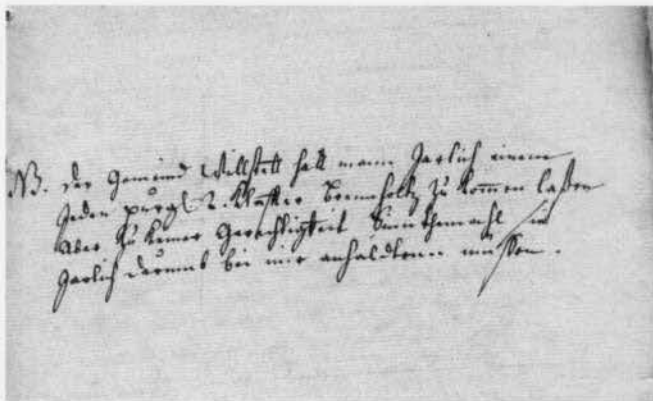 NB. Der Gemeind Willstett hatt mann Jarlich einem
Jeden purgl 2. Klaffter Brennholtz Zu kommen laßen
Aber Zu keiner Gerechtigkeit Sinnthemahl sie
Jarlich darumb bei mir anhaldtenn müssen.